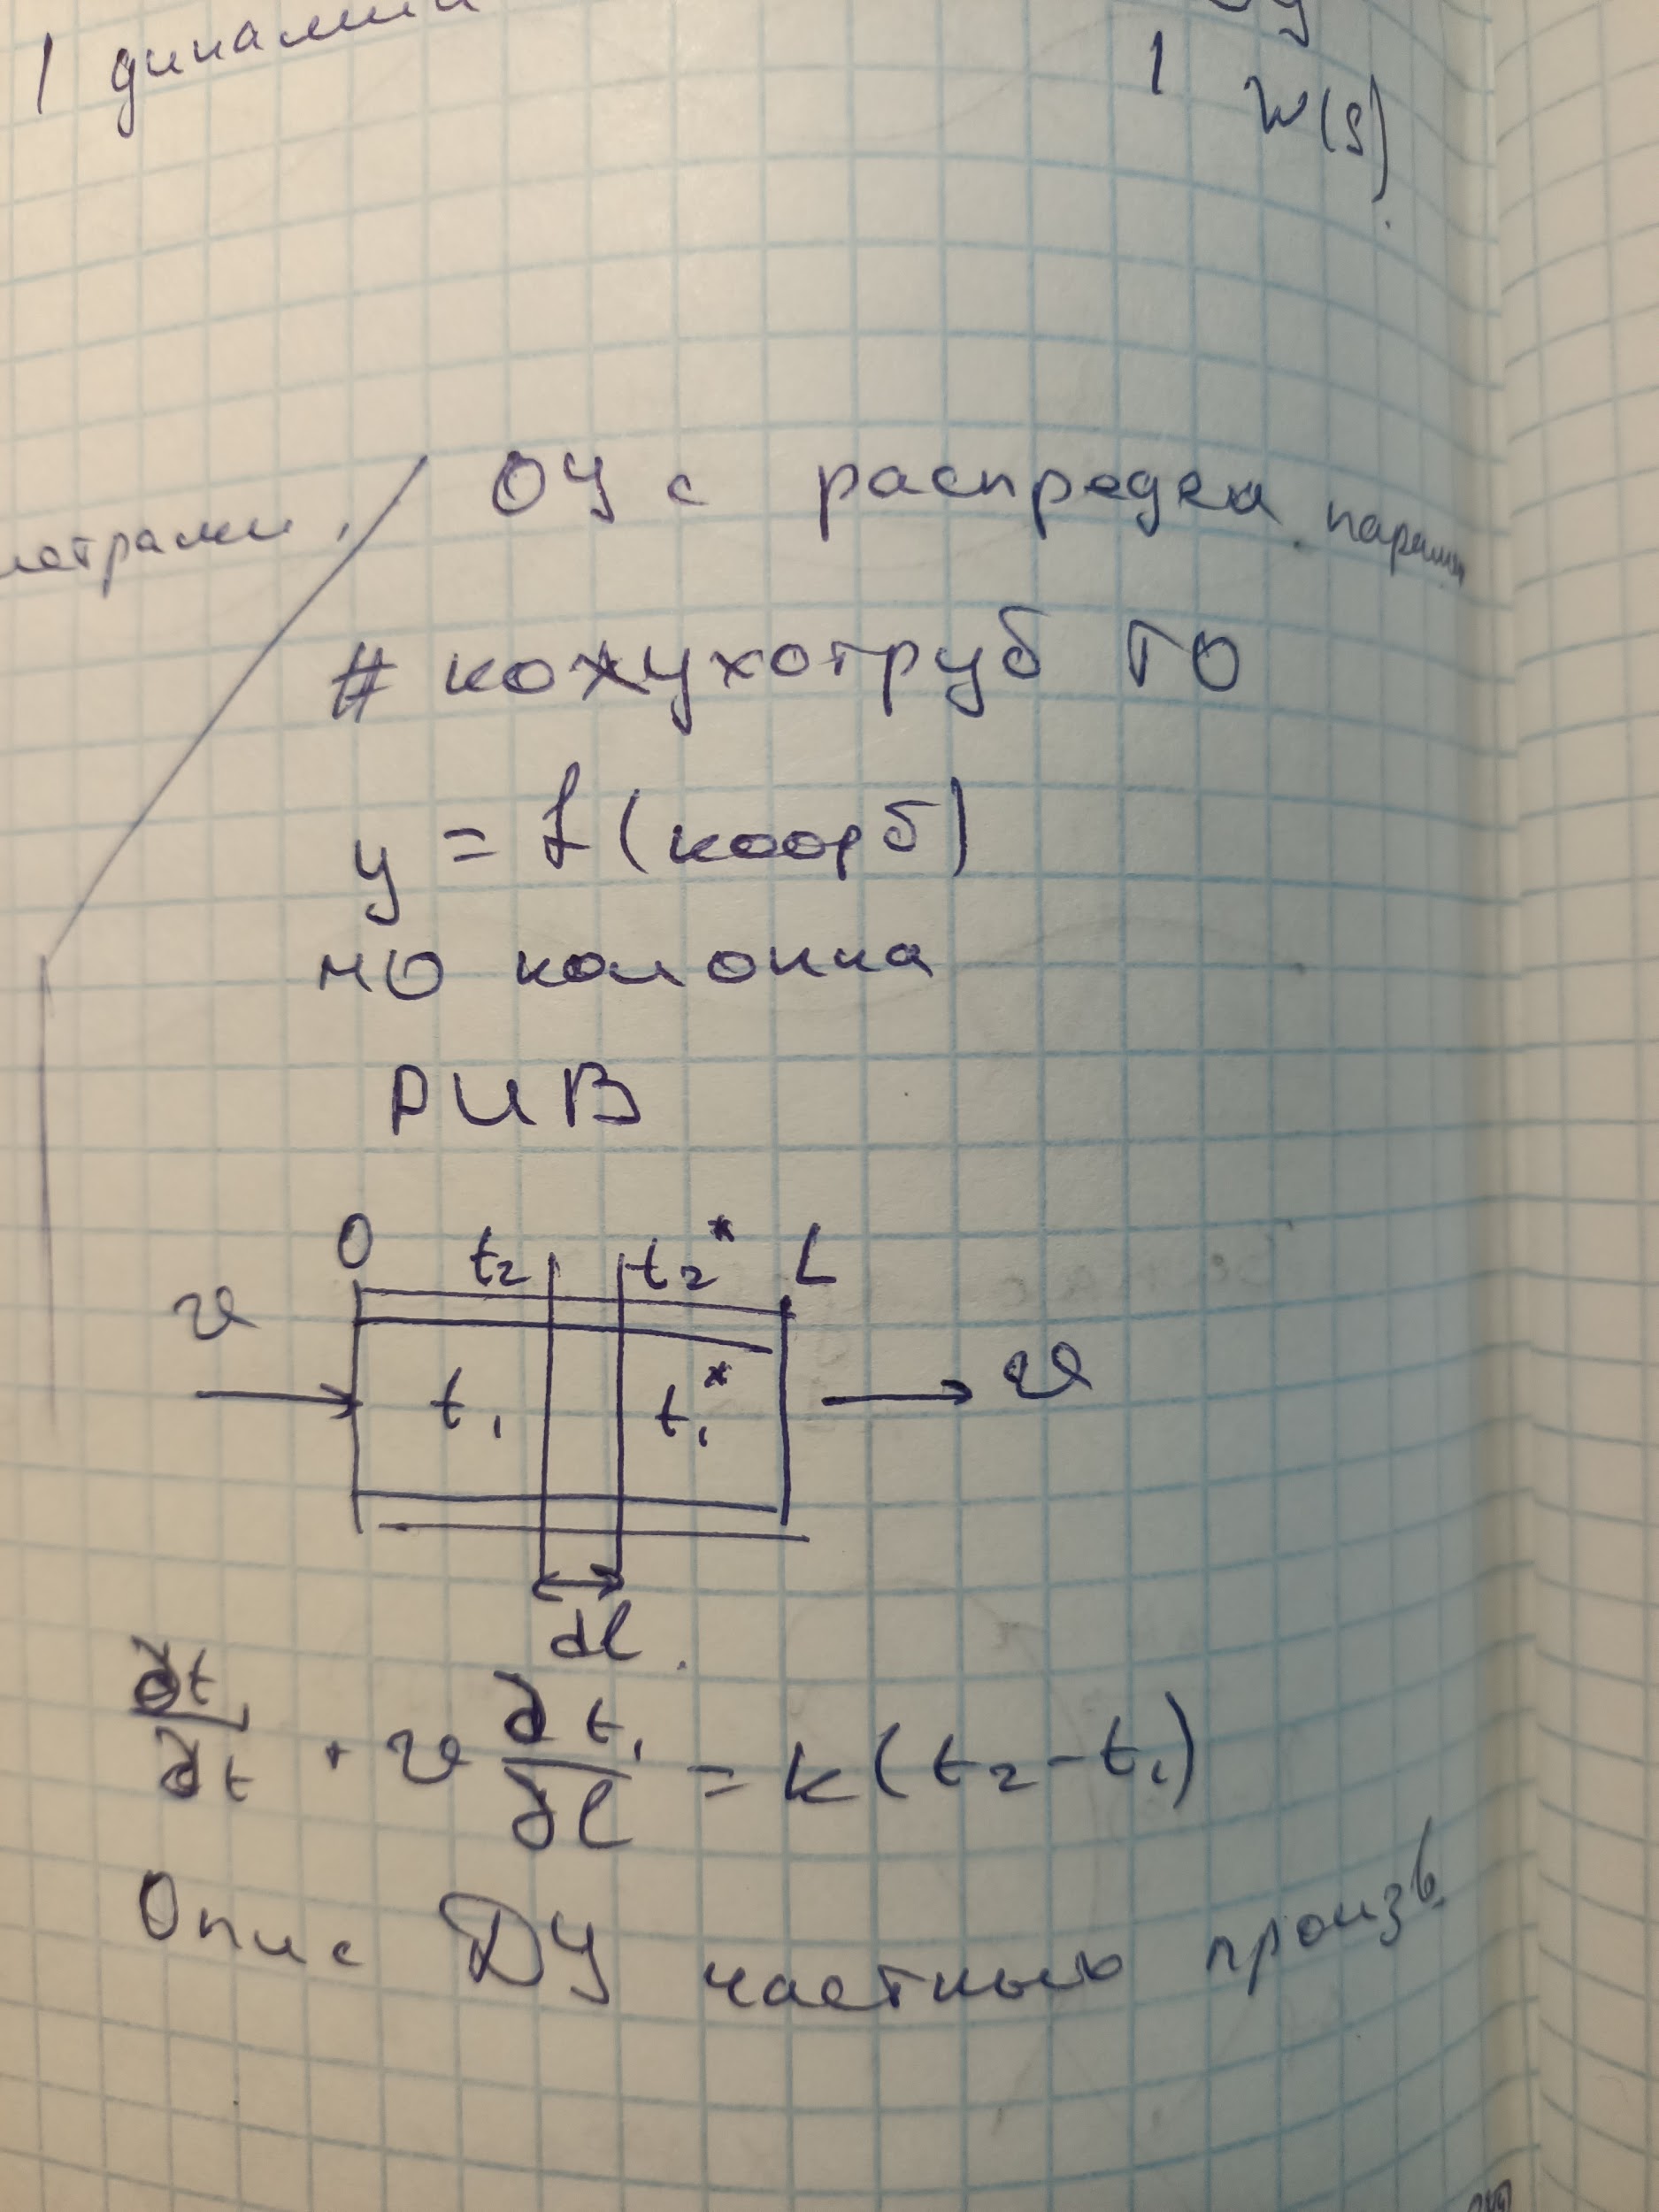 1 динами
1 W(s)
метрами,
ОУ с распредел. парам
# кожухотруб ТО
y = f(коорд)
МО колонна
РИВ
0 t₂ t₂* L
v t₁ t₁* v
dl
∂t₁/∂t + v ∂t₁/∂l = k(t₂ - t₁)
Опис ДУ частные произв